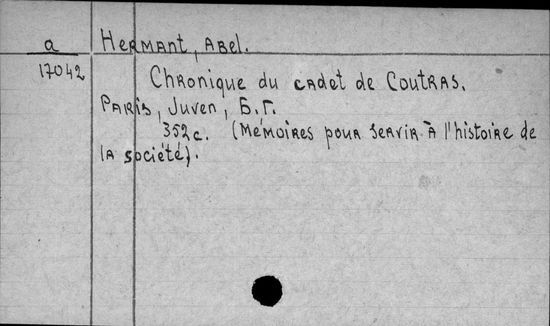 a
17042
Hermant, Abel.
Chronique du cadet de Coutras.
Paris, Juven, Б.Г.
352 с. (Mémoires pour servir à l'histoire de
la société).